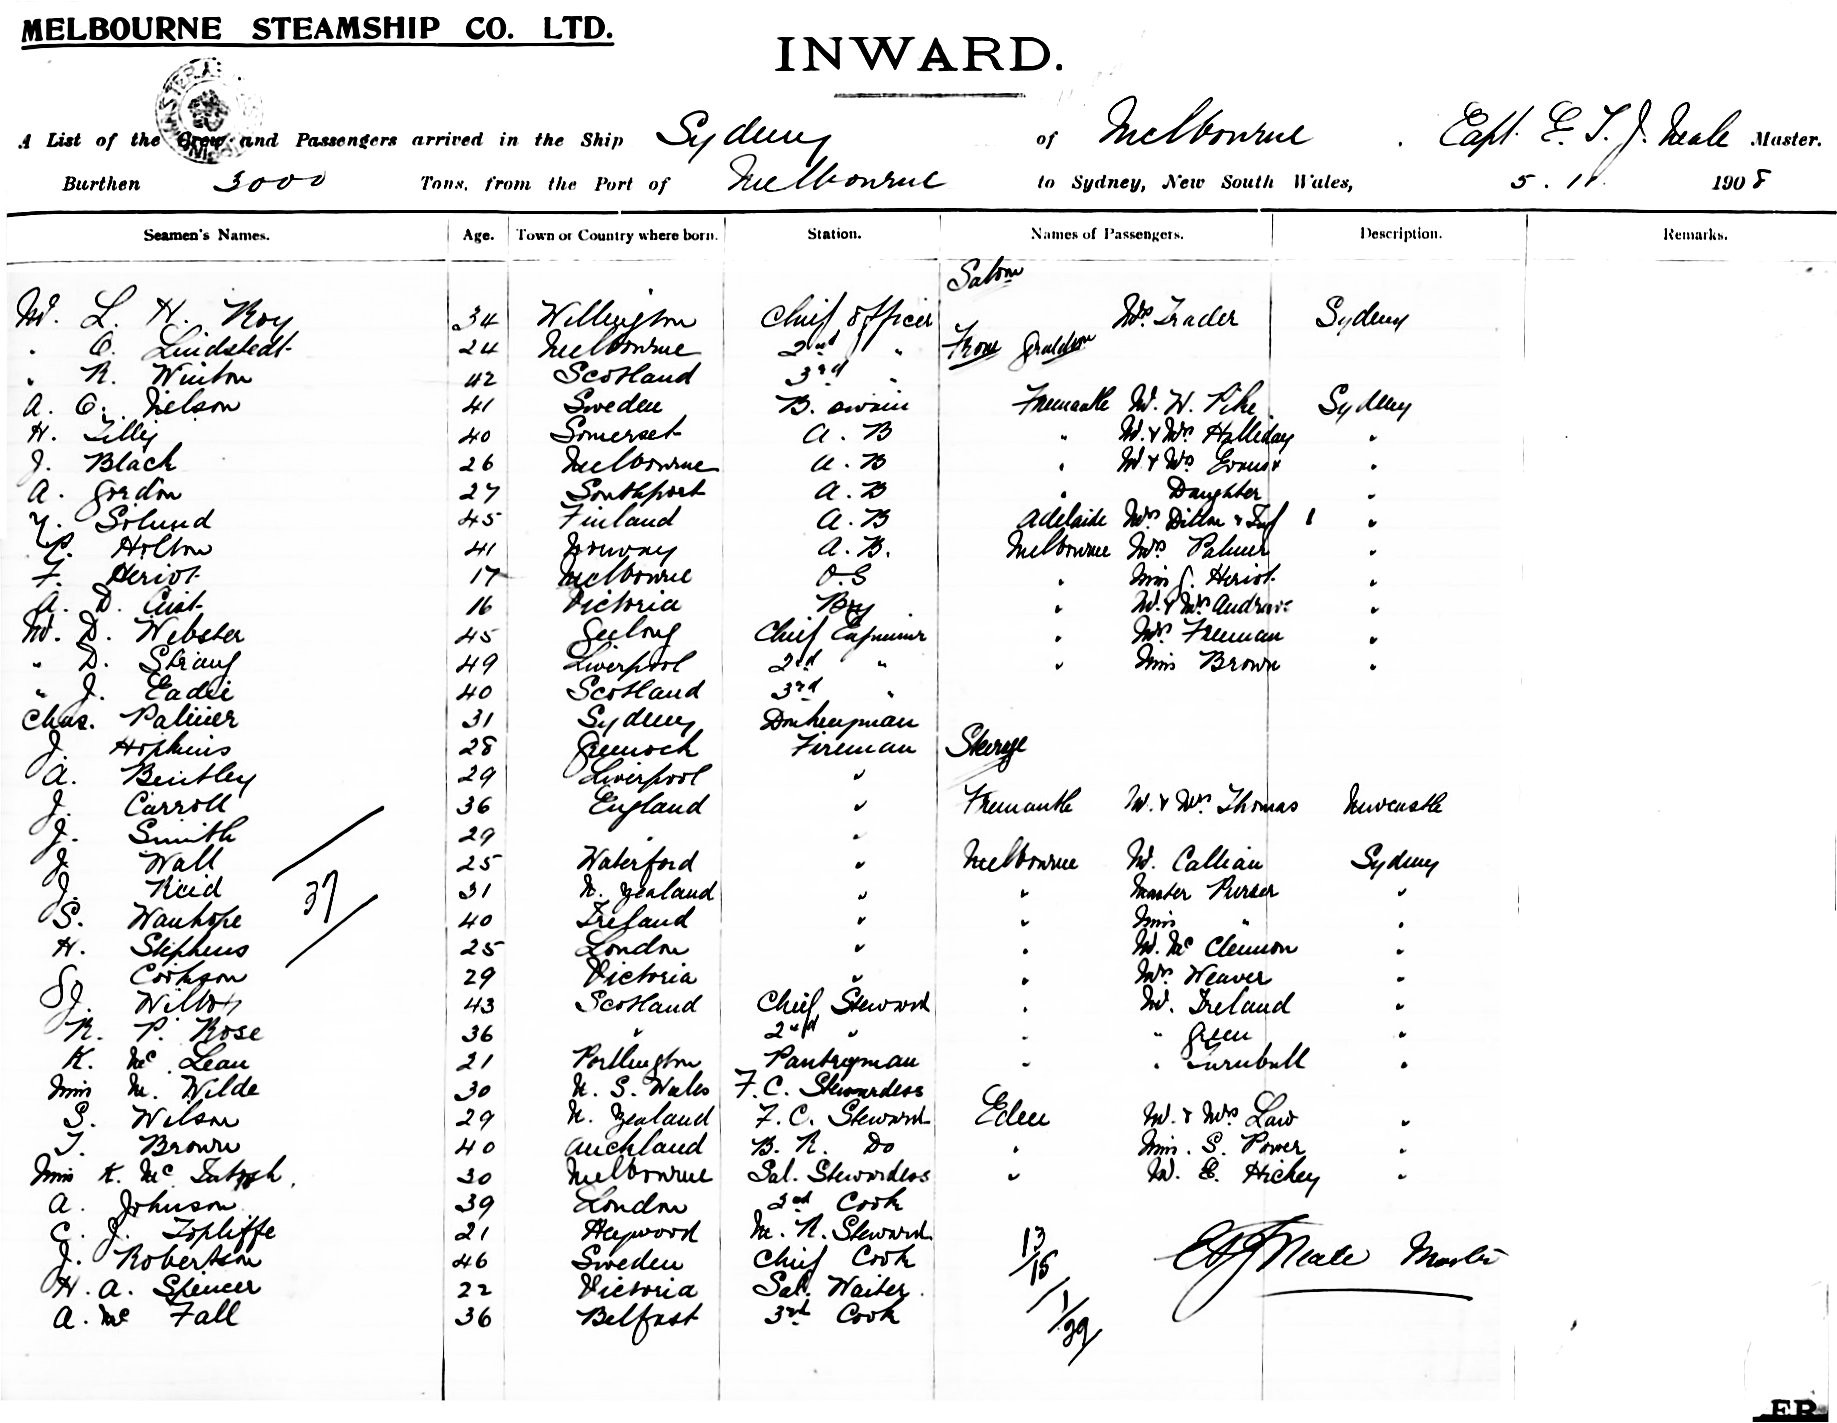 MELBOURNE STEAMSHIP CO. LTD.
INWARD.
A List of the Crew and Passengers arrived in the Ship Sydney of Melbourne . Capt. E. T. J. Neale Master.
Burthen 3000 Tons, from the Port of Melbourne to Sydney, New South Wales, 5 . 11 . 1908
Seamen's Names. Age. Town or Country where born. Station. Names of Passengers. Description. Remarks.
Saloon
Mr. L. H. Roy 34 Wellington Chief Officer Mrs Trader Sydney
" C. Lindstedt 24 Melbourne 2nd " From Geraldton
" R. Winton 42 Scotland 3rd "
A. C. Nelson 41 Sweden B. swain Fremantle Mr. W. Pike Sydney
H. Tilly 40 Somerset A. B " Mr. & Mrs Halliday "
J. Black 26 Melbourne A. B " Mr & Mrs Evans & "
A. Gordon 27 Southport A. B " Daughter "
Y. Solund 45 Finland A. B Adelaide Mrs Ditton & Inf 1 "
P. Holton 41 Norway A. B. Melbourne Mrs Palmer "
F. Heriot 17 Melbourne O.S " Miss G. Heriot "
A. D. Aist 16 Victoria Boy " Mr. & Mrs Andrews "
Mr. D. Webster 45 Geelong Chief Engineer " Mrs Freeman "
" D. Strang 49 Liverpool 2nd " " Miss Brown "
" J. Eadie 40 Scotland 3rd "
Chas. Palmer 31 Sydney Donkeyman
J. Hopkins 28 Greenock Fireman Steerge
A. Bentley 29 Liverpool "
J. Carroll 36 England " Fremantle Mr. & Mrs Thomas Newcastle
J. Smith 29 " "
J. Wall 25 Waterford " Melbourne Mr. Callian Sydney
J. Reid 37 31 N. Zealand " " Master Purser "
S. Wauhope 40 Ireland " " Miss " "
H. Stephens 25 London " " Mr. Mc Clennon "
G. Cookson 29 Victoria " " Mrs Weaver "
J. Wilton 43 Scotland Chief Steward " Mr. Ireland "
R. P. Rose 36 " 2nd " " " Green "
K. Mc Lean 21 Portlington Pantryman " " Turnbull "
Miss M. Wilde 30 N. S. Wales F. C. Stewardess
S. Wilson 29 N. Zealand F. C. Steward Eden Mr. & Mrs Law "
T. Brown 40 Auckland B. R. Do " Miss. S. Power "
Miss K. Mc Intosh 30 Melbourne Sal. Stewardess " Mr. E. Hickey "
A. Johnson 39 London 2nd Cook
C. J. Topliffe 21 Heywood M. R. Steward 13
J. Robertson 46 Sweden Chief Cook /15 E T J Neale Master
H. A. Spencer 22 Victoria Sal. Waiter 1
A. Mc Fall 36 Belfast 3rd Cook /29